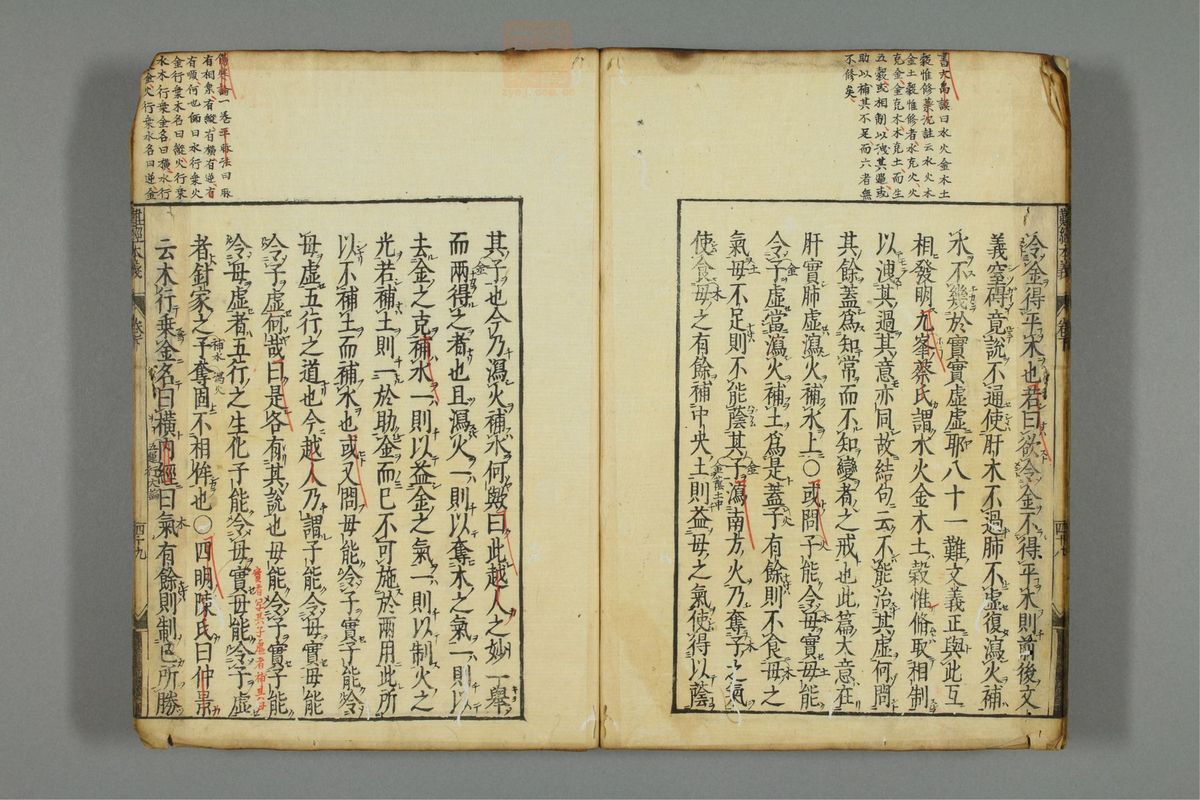 書大禹謨曰水火金木土
穀惟修蔡沈註云水火木
金土穀惟修者水克火火
克金金克木木克土而生
五穀或相制以洩其過或
助以補其不足而六者無
不修矣
冷金得平木也若曰欲令金不得平木則前後文
義窒碍竟說不通使肝木不過肺不虛復瀉火補
水不幾於實實虛虛耶八十一難文義正與此互
相發明九峯蔡氏謂水火金木土穀惟脩取相制
以洩其過其意亦同故結句云不能治其虛何問
其餘蓋爲知常而不知變者之戒也此篇大意在
肝實肺虛瀉火補水上○或問子能令母實母能
令子虛當瀉火補土爲是蓋子有餘則不食母之
氣母不足則不能蔭其子瀉南方火乃奪子之氣
使食母之有餘補中央土則益母之氣使得以蔭
難經本義
其子也今乃瀉火補水何歟曰此越人之妙一舉
而兩得之者也且瀉火一則以奪木之氣一則以
去金之克補水一則以益金之氣一則以制火之
光若補土則一於助金而已不可施於兩用此所
以不補土而補水也或又問母能令子實子能令
母虛五行之道也今越人乃謂子能令母實母能
令子虛何哉曰是各有其說也母能令子實子能
令母虛者五行之生化子能令母實母能令子虛
者針家之予奪固不相侔也○四明陳氏曰仲景
云木行乗金名曰横內經曰氣有餘則制已所勝
實者
其子虛者補其母
補水
瀉火
難經本義
四十九
傷寒論一卷平脉法曰脉
有相乗有縱有横有逆有
順何也師曰水行乗火
金行乗木名曰縱火行乗
水木行乗金名曰横水行
乗金火行乗木名曰逆金